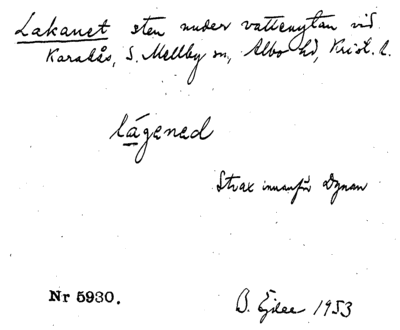 Lakanet sten under vattenytan vid
Karakås, S. Mellby sn, Albo hd, Krist. l.
lágened
Strax innanför Dynan
Nr 5930.
B. Ejder 1953